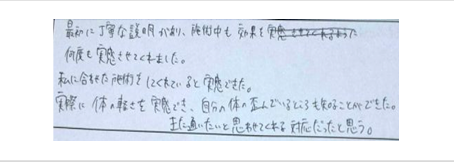 最初に丁寧な説明があり、施術中も効果を実感させてくれるよう
何度も実感させてくれました。
私に合わせた施術をしてくれていると実感できた。
実際に体の軽さを実感でき、自分の体の歪んでいるところも知ることができた。
また通いたいと思わせてくれる対応だったと思う。